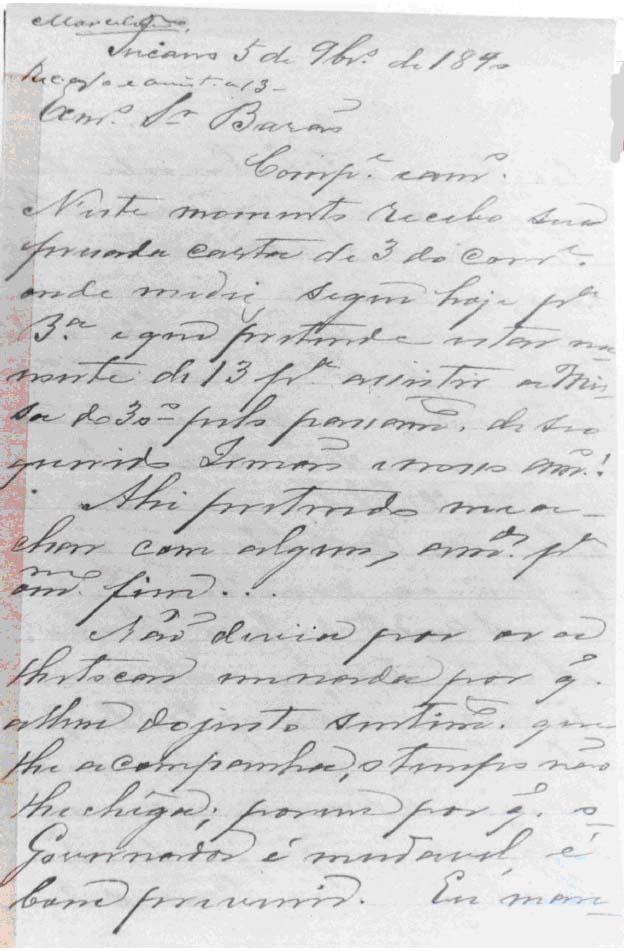 5 de 9br.º de 1890
Am.º Sr. Barão
Comp.e e am.º
Neste momento recebo sua
presada carta de 3 do corr.e
onde me diz seguir hoje p.a
B.a e que pretende estar na
noite de 13 p.a assistir a Mis-
sa do 30º pelo passam.to de seo
querido Irmão e nosso am.º!
Ahi pretendo me a-
char com alguns am.os p.a
o m.mo fim...
Não devia por ora
lhe tocar em nada por q.
alem do justo sentim.to que
lhe acompanha, o tempo não
lhe chega; porem por q. o
Governador é mudavel, é
bom prevenir. Eu man-